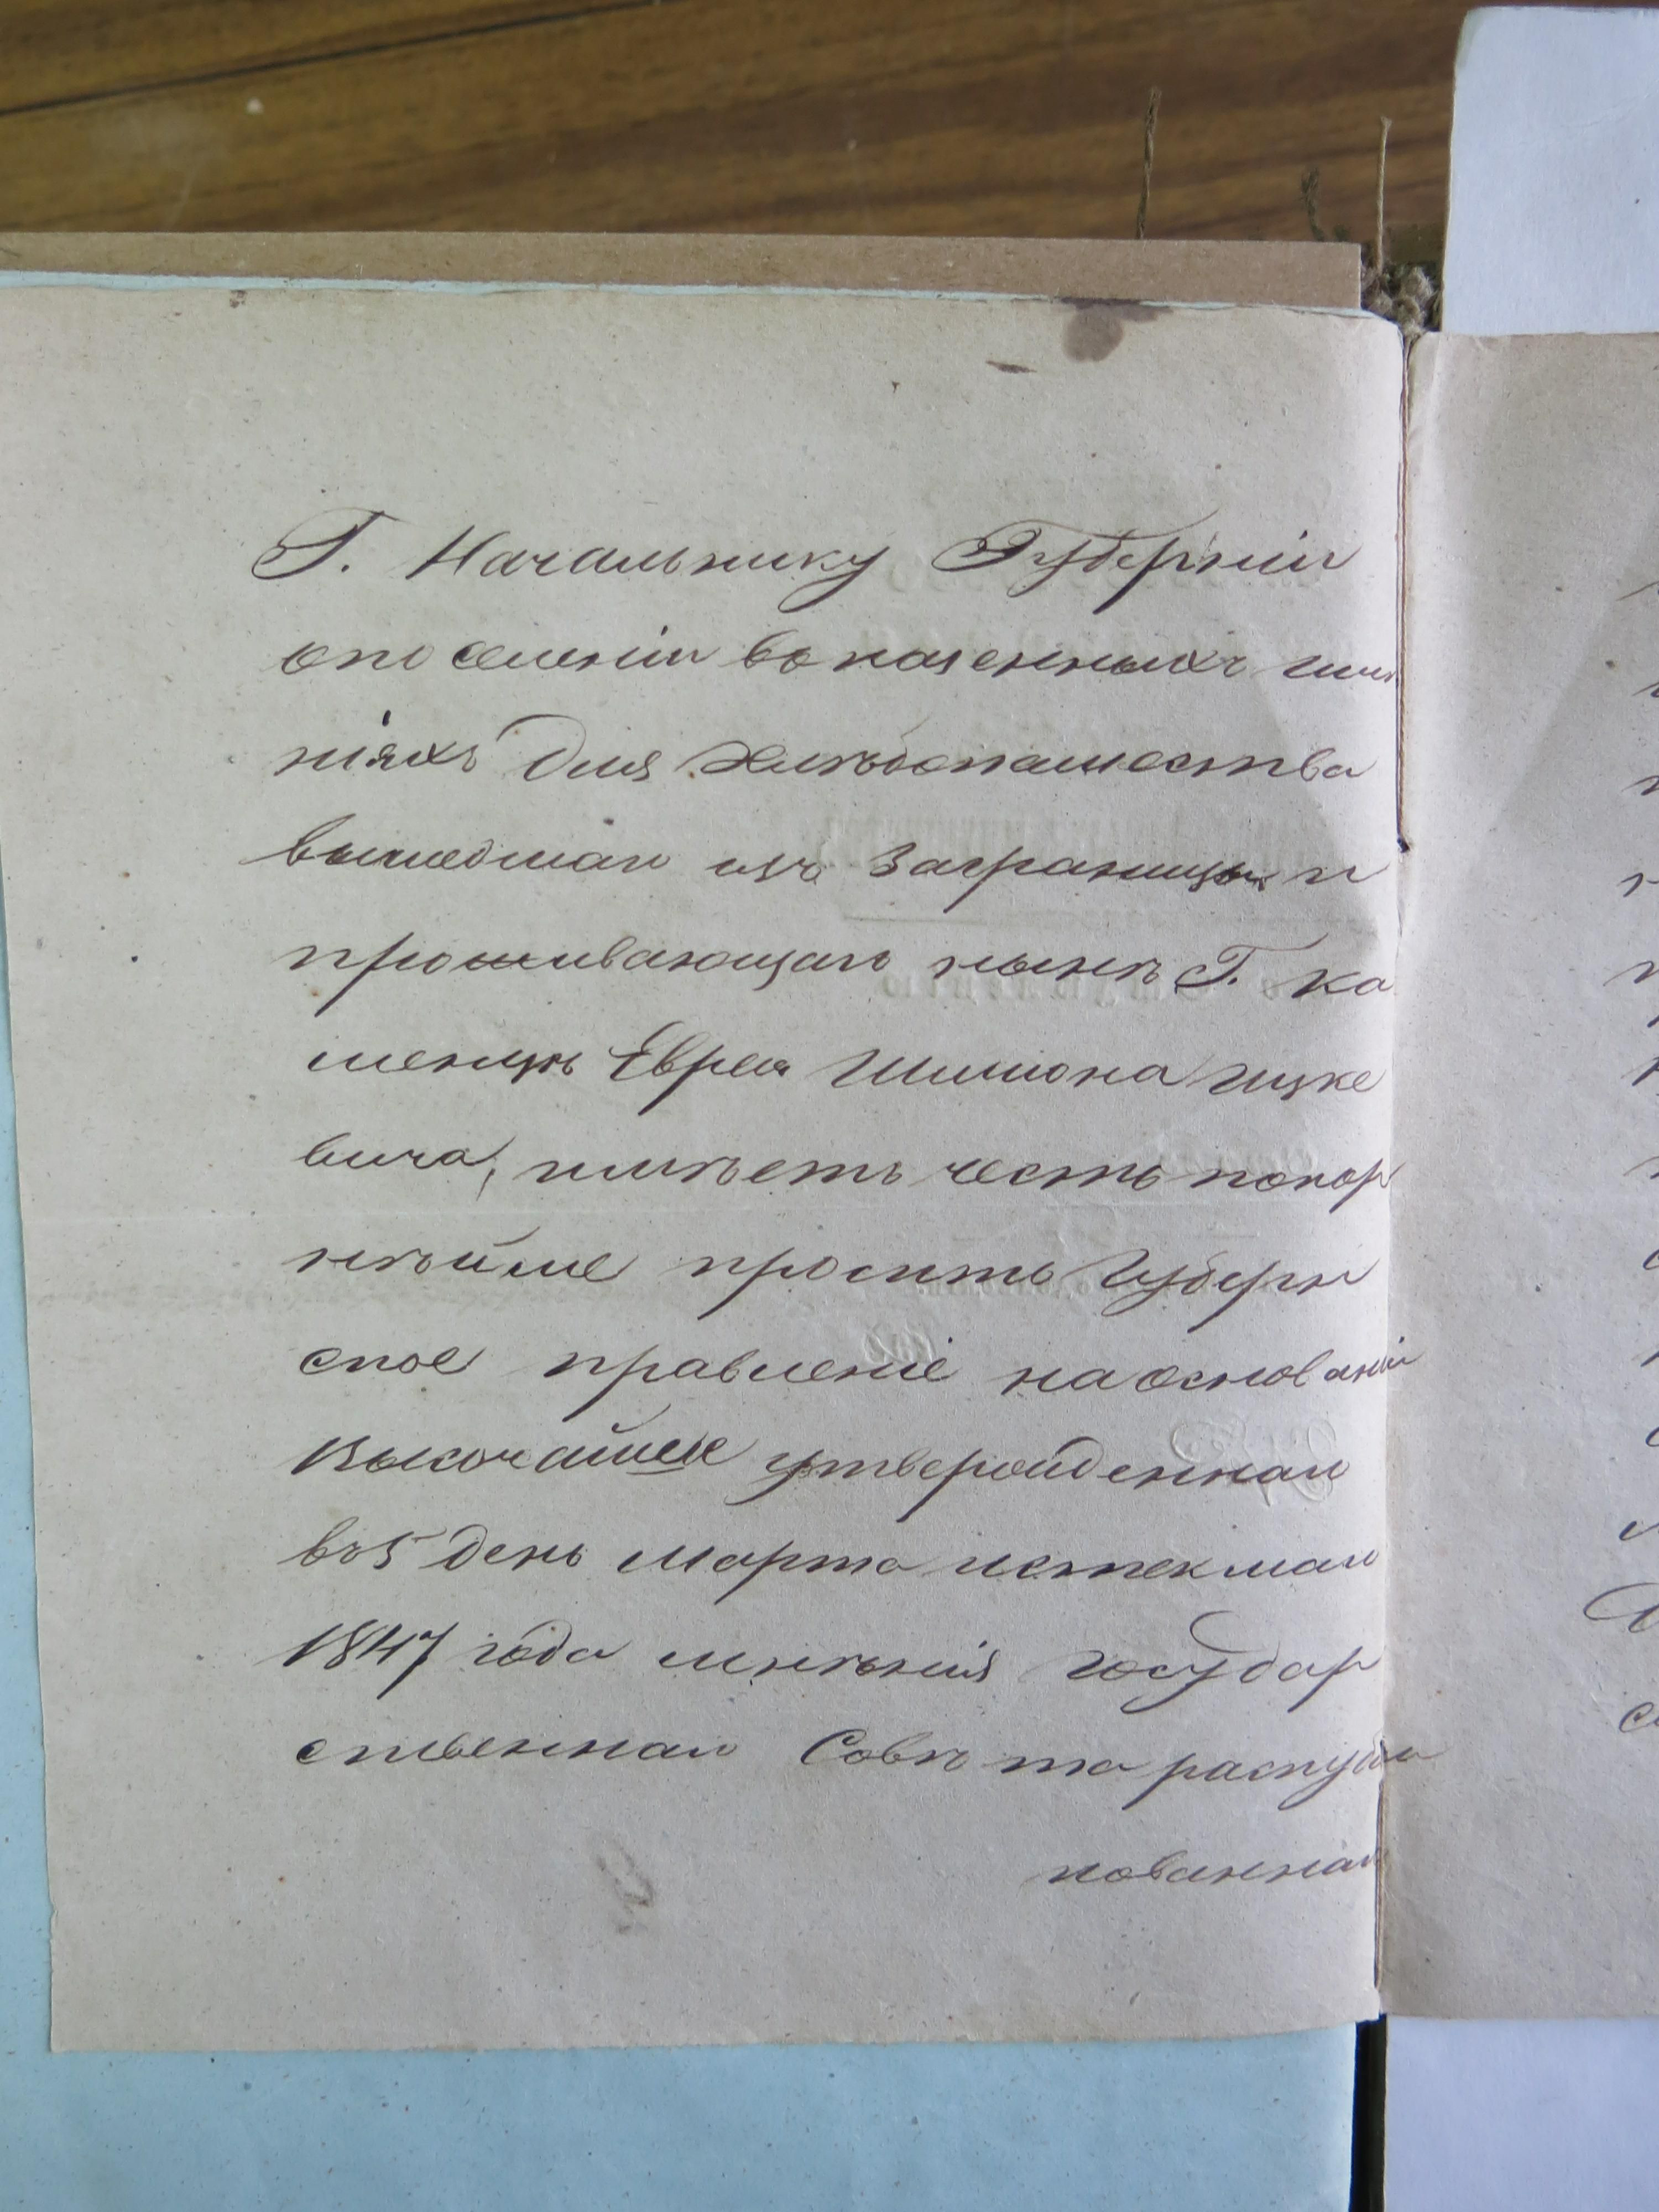 Г. Начальнику Губерніи
опоселеніи вь казенныхъ имѣ
ніяхъ для хлѣбопашества
вышедшаго изъ Заграницы и
проживающаго нынѣ Г. Ка
менцѣ Еврея Шимона Ицке
вича, имѣетъ честь покор
нѣйше просить Губерн
ское правленіе наоснованіи
Высочайше утвержденнаго
въ 5 день Марта истекшаго
1847 года мнѣнія Государ
ственнаго Совѣта распубли
кованнаго